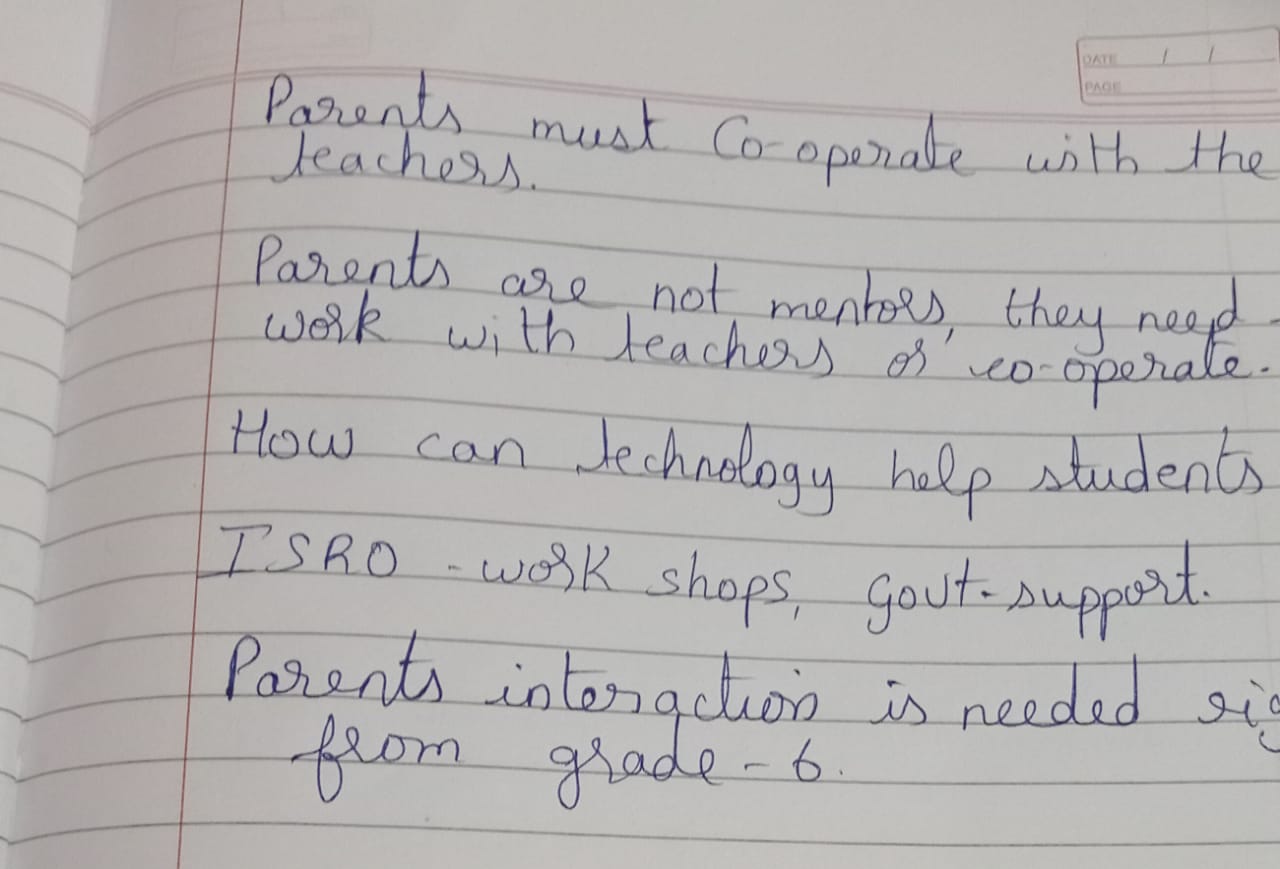 DATE / /
PAGE
Parents must Co-operate with the
teachers.
Parents are not mentors, they need
work with teachers or co-operate.
How can technology help students
ISRO - work shops, govt. support.
Parents interaction is needed
from grade - 6.